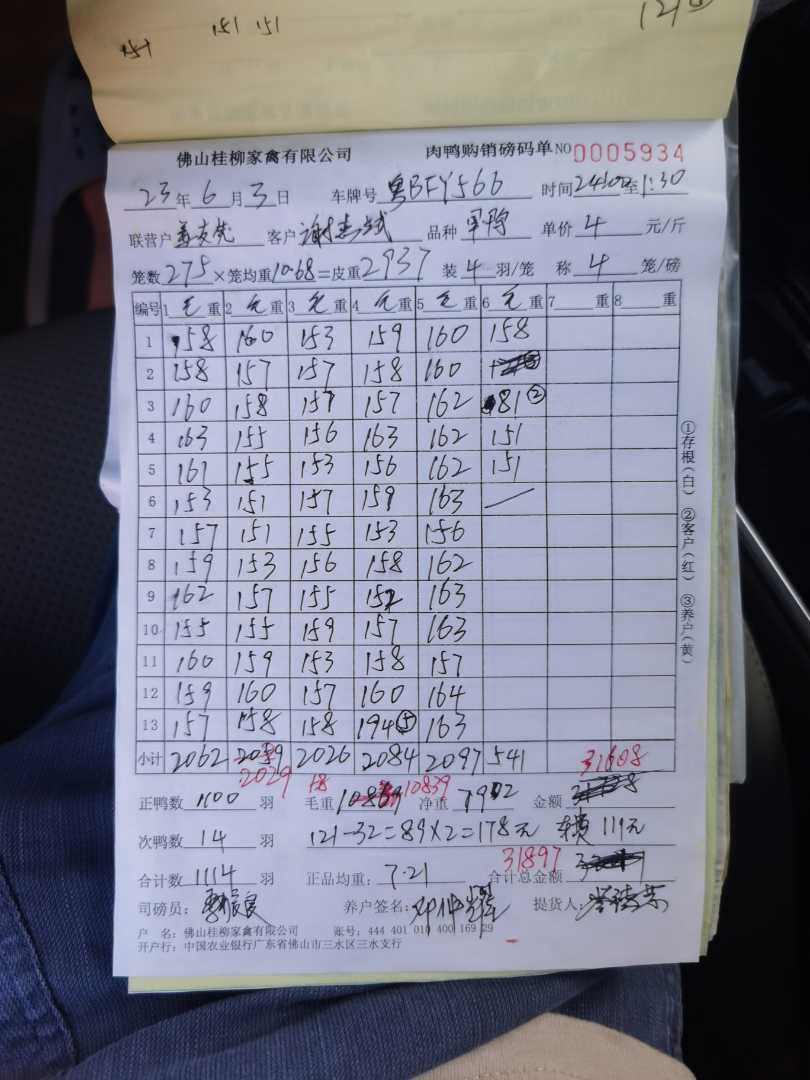 151 151 151
佛山桂柳家禽有限公司 肉鸭购销磅码单 NO 0005934
23 年 6 月 3 日 车牌号 粤BFY566 时间 24:00 至 1:30
联营户 客户 品种 单价 4 元/斤
笼数 275 ×笼均重 10.68 =皮重 2937 装 4 羽/笼 称 4 笼/磅
编号 1 毛 重 2 毛 重 3 毛 重 4 毛 重 5 毛 重 6 毛 重 7 重 8 重
1 158 160 153 159 160 158
2 158 157 157 158 160
3 160 158 157 157 162 81②
4 163 155 156 163 162 151
5 161 155 153 156 162 151
6 153 151 157 159 163
7 157 151 155 153 156
8 159 153 156 158 162
9 162 157 155 152 163
10 155 155 159 157 163
11 160 159 153 158 157
12 159 160 157 160 164
13 157 158 158 194⑤ 163
小计 2062 2029 2026 2084 2097 541 31608
正鸭数 1100 羽 毛重 10839 净重 7902 金额
次鸭数 14 羽 121-32=89×2=178元 119元
合计数 1114 羽 正品均重: 7.21 合计总金额 31897
司磅员: 养户签名: 提货人:
户 名: 佛山桂柳家禽有限公司 账号: 444 401 010 400 169 29
开户行: 中国农业银行广东省佛山市三水区三水支行
①存根(白) ②客户(红) ③养户(黄)